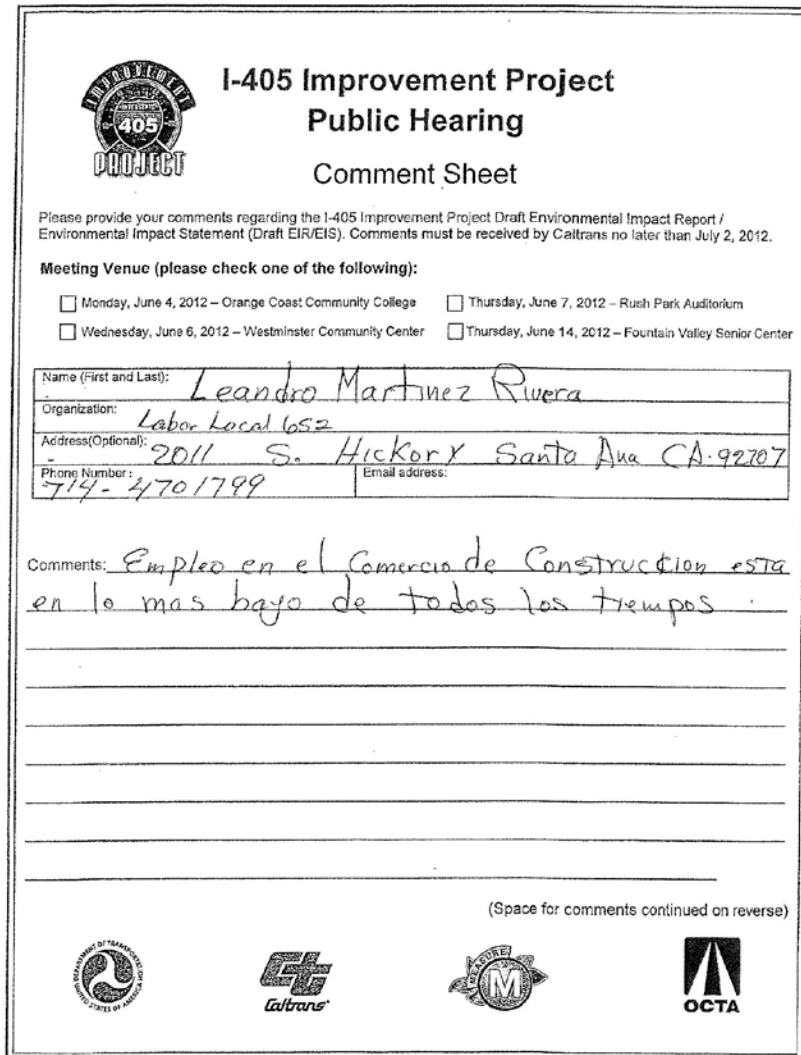 IMPROVEMENT
INTERSTATE
405
PROJECT
I-405 Improvement Project
Public Hearing
Comment Sheet
Please provide your comments regarding the I-405 Improvement Project Draft Environmental Impact Report /
Environmental Impact Statement (Draft EIR/EIS). Comments must be received by Caltrans no later than July 2, 2012.
Meeting Venue (please check one of the following):
Monday, June 4, 2012 – Orange Coast Community College
Thursday, June 7, 2012 – Rush Park Auditorium
Wednesday, June 6, 2012 – Westminster Community Center
Thursday, June 14, 2012 – Fountain Valley Senior Center
Name (First and Last): Leandro Martinez Rivera
Organization: Labor Local 652
Address(Optional): 2011 S. Hickory Santa Ana CA. 92707
Phone Number: 714-4701799
Email address:
Comments: Empleo en el Comercio de Construccion esta
en lo mas bayo de todos los tiempos.
(Space for comments continued on reverse)
DEPARTMENT OF TRANSPORTATION
UNITED STATES OF AMERICA
Caltrans
MEASURE
M
OCTA